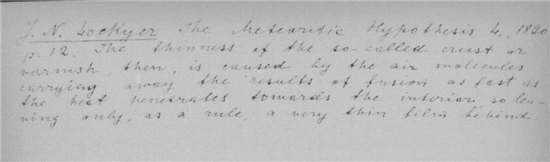 J. N. Lockyer The Meteoritic Hypothesis L., 1890
p. 12. The thinness of the so-called crust or
varnish, then, is caused by the air molecules
carrying away the results of fusion as fast as
the heat penetrates towards the interior, so lea-
ving only, as a rule, a very thin film behind.